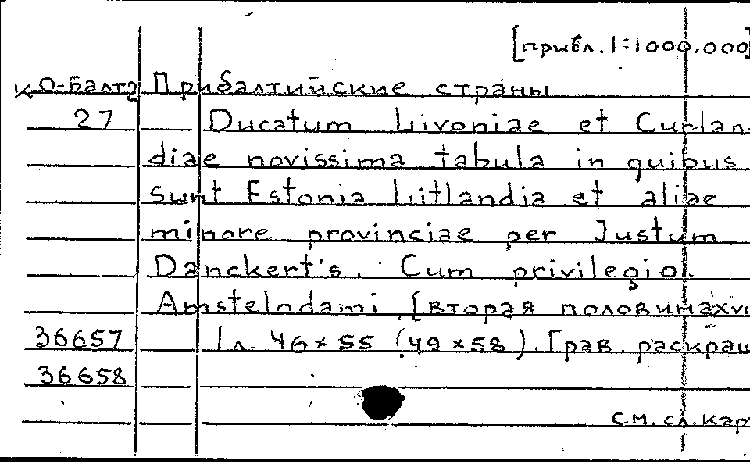 [прибл. 1:1000.000]
К О-Балт Прибалтийские страны
27 Ducatum Livoniae et Curlan
diae novissima tabula in quibus
sunt Estonia Litlandia et aliae
minore provinciae per Justum
Danckert's. Cum privilegio.
Amstelodami. [вторая половина XVI
36657 1 л. 46×55 (49×58). Грав раскраш
36658
С.М. сл. Кар